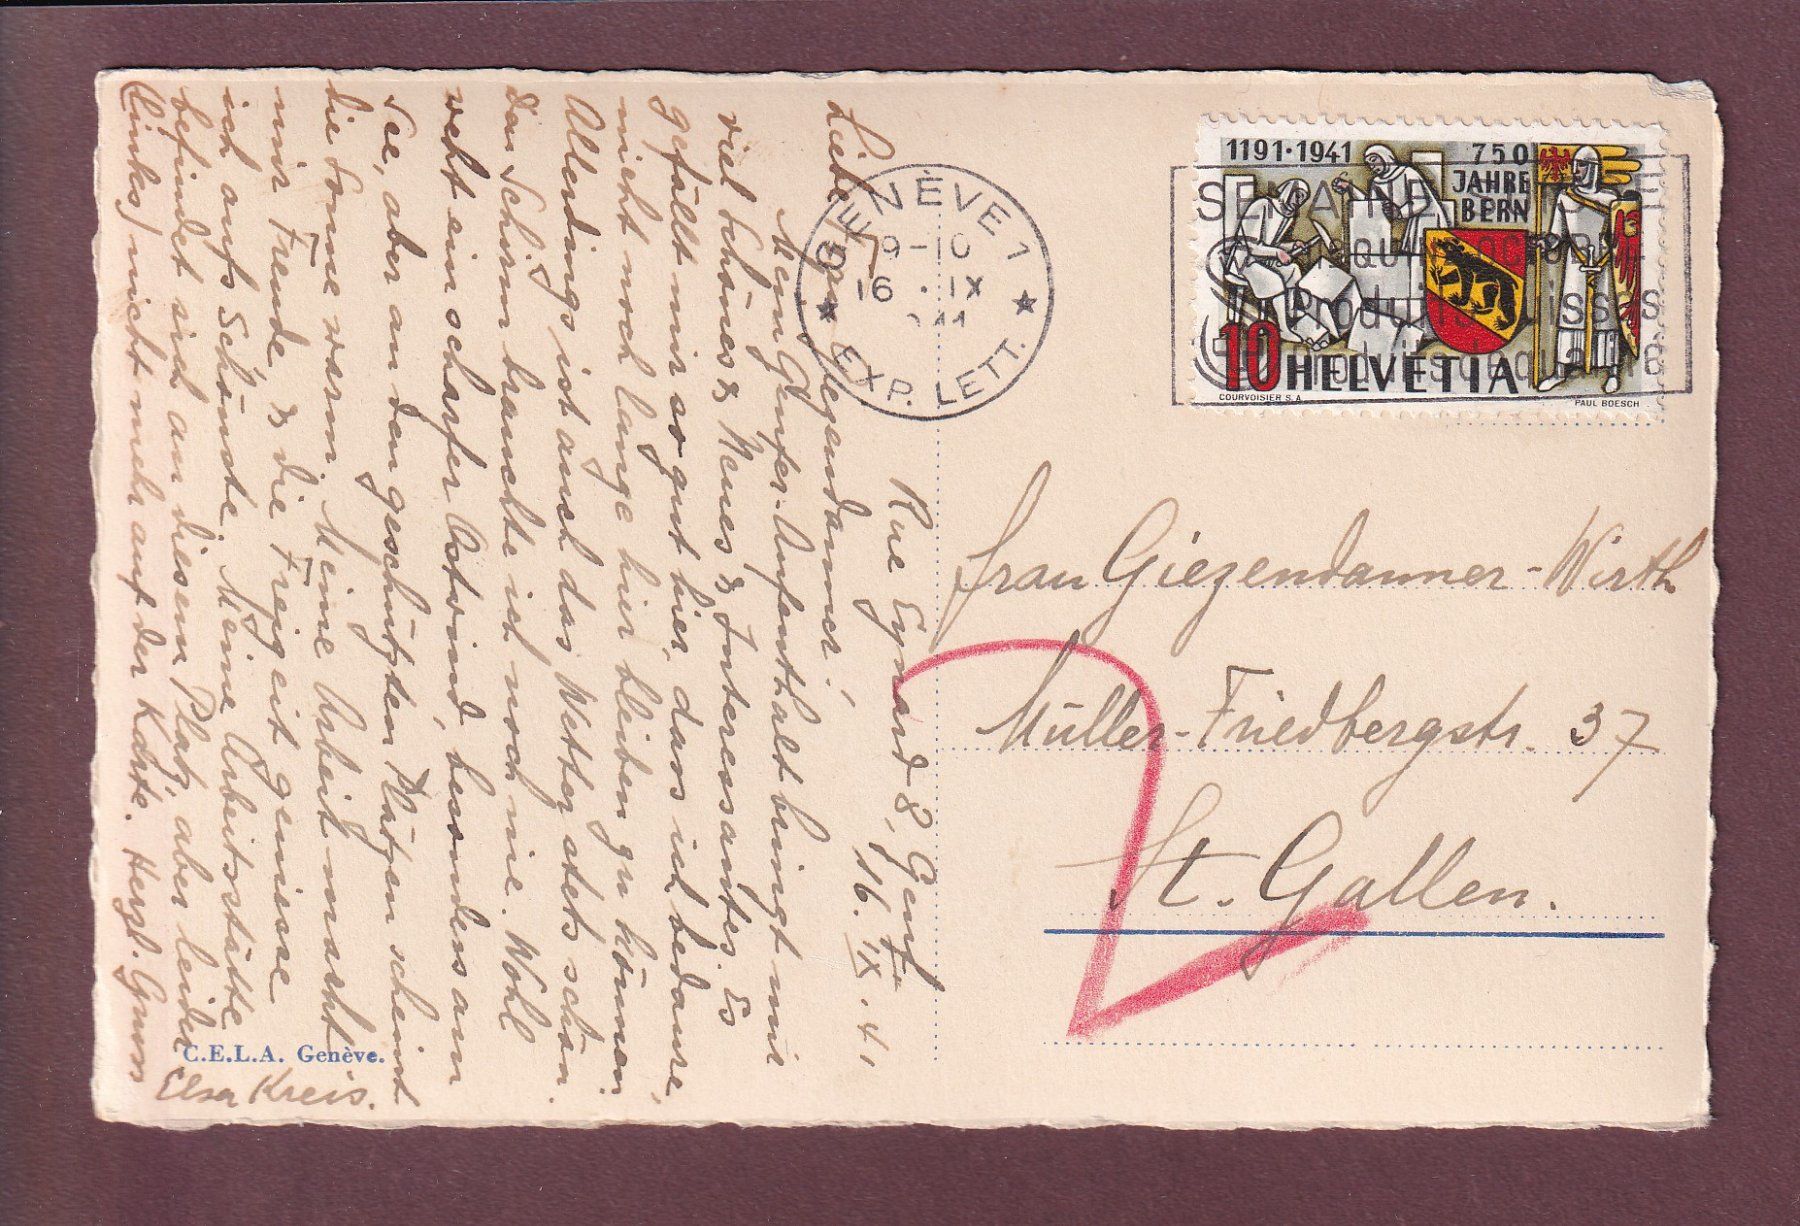 Rue Eynard 8, Genf
16. IX. 41
Liebe Frau Giezendanner!
Mein Genfer-Aufenthalt bringt mir
viel Schönes & Neues & Interessantes. Es
gefällt mir so gut hier, dass ich bedaure,
nicht noch lange hier bleiben zu können.
Allerdings ist auch das Wetter stets schön.
Den Schirm brauchte ich noch nie. Wohl
weht ein scharfer Ostwind, besonders am
See, aber an den geschützten Plätzen scheint
die Sonne warm. Meine Arbeit macht
mir Freude & die Freizeit geniesse
ich aufs Schönste. Meine Arbeitsstätte
befindet sich an diesem Platz, aber leider
(links) nicht mehr auf der Karte. Herzl. Gruss
Elsa Kreis.
C.E.L.A. Genève.
GENÈVE 1
9-10
16 · IX
EXP. LETT.
1191·1941
750
JAHRE
BERN
10 HELVETIA
COURVOISIER S.A.
PAUL BOESCH
SEMAINE
Produits suisses
Frau Giezendanner-Wirth
Müller-Friedbergstr. 37
St. Gallen.